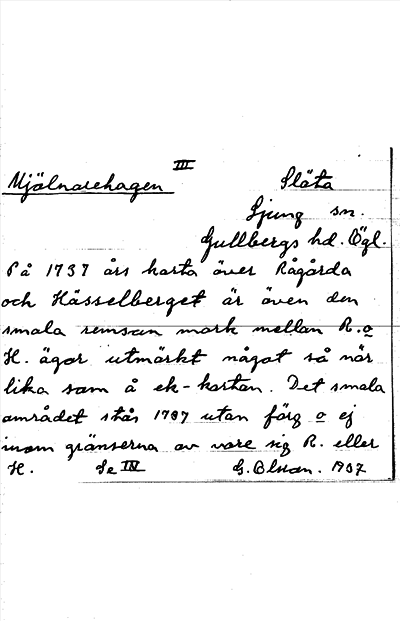 III
Mjölnarehagen Släta
Ljung sn.
Gullbergs hd. Ögl.
På 1737 års karta över Rågårda
och Hässelberget är även den
smala remsan mark mellan R. o
H. ägor utmärkt något så när
lika som å ek-kartan. Det smala
området står 1737 utan färg o ej
inom gränserna av vare sig R. eller
H. Se IV G. 1937